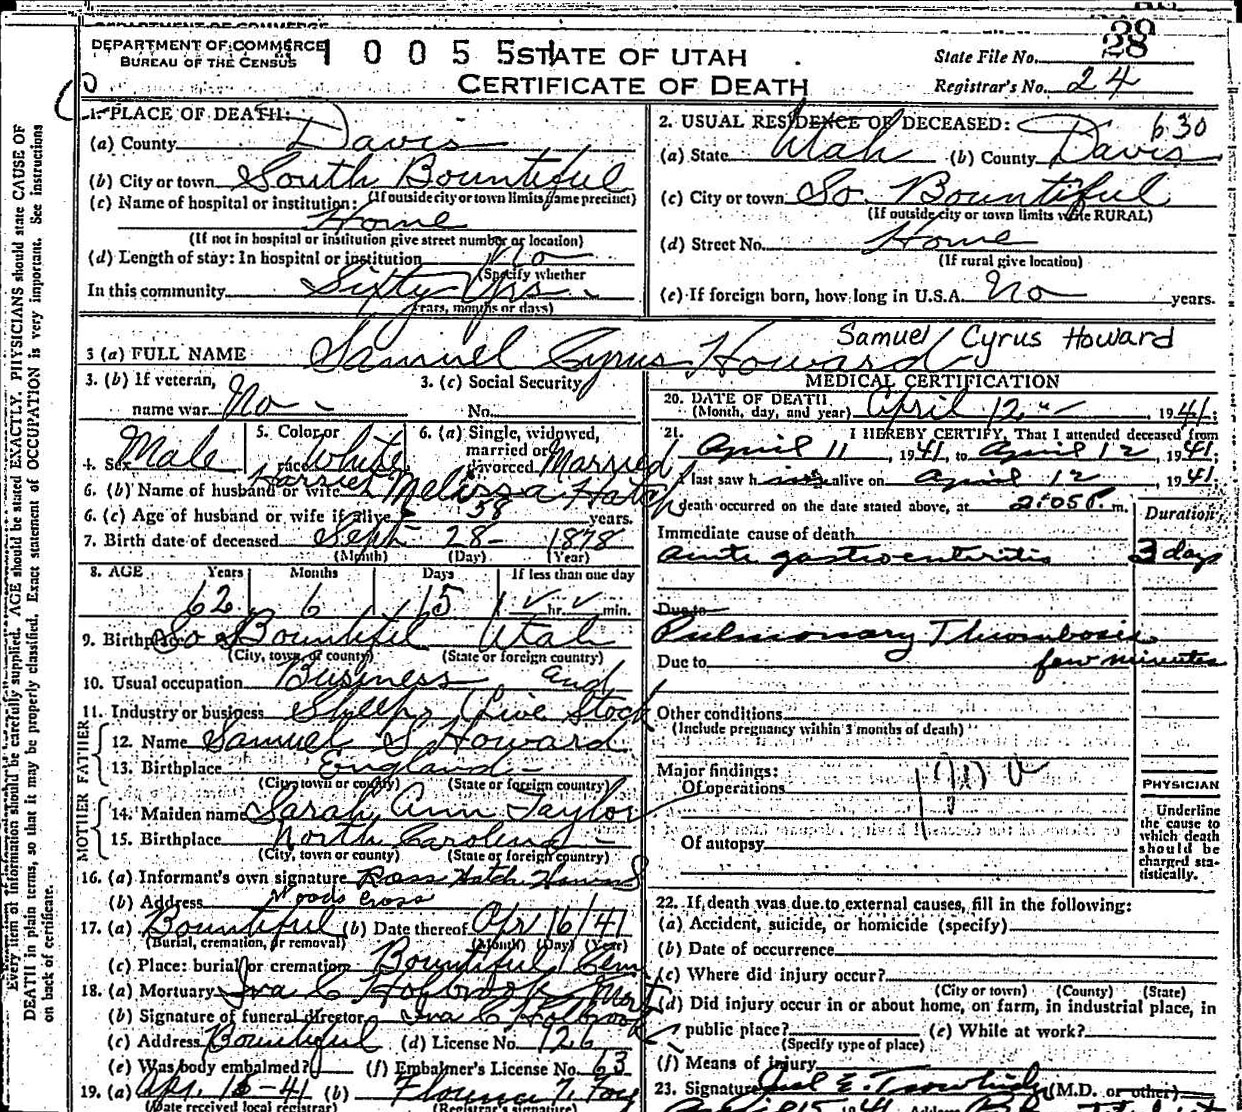 DEPARTMENT OF COMMERCE
BUREAU OF THE CENSUS
1 0 0 5 5 1
STATE OF UTAH
CERTIFICATE OF DEATH
State File No. 28
Registrar's No. 24
1. PLACE OF DEATH:
(a) County Davis
(b) City or town South Bountiful
(If outside city or town limits name precinct)
(c) Name of hospital or institution:
Home
(If not in hospital or institution give street number or location)
(d) Length of stay: In hospital or institution No
(Specify whether
In this community Sixty Yrs.
years, months or days)
2. USUAL RESIDENCE OF DECEASED: 630
(a) State Utah (b) County Davis
(c) City or town So. Bountiful
(If outside city or town limits write RURAL)
(d) Street No. Home
(If rural give location)
(e) If foreign born, how long in U.S.A. No years.
3 (a) FULL NAME Samuel Cyrus Howard
Samuel Cyrus Howard
3. (b) If veteran,
name war No
3. (c) Social Security
No.
4. Sex Male
5. Color or
race White
6. (a) Single, widowed,
married or
divorced Married
6. (b) Name of husband or wife Harriet Melissa Hatch
6. (c) Age of husband or wife if alive 58 years.
7. Birth date of deceased Sept 28 1878
(Month) (Day) (Year)
8. AGE Years Months Days If less than one day
62 6 15 hr. min.
9. Birthplace So Bountiful Utah
(City, town, or county) (State or foreign country)
10. Usual occupation Business and
11. Industry or business Sheep (Live Stock
FATHER
12. Name Samuel S Howard
13. Birthplace England
(City, town or county) (State or foreign country)
MOTHER
14. Maiden name Sarah Ann Taylor
15. Birthplace North Carolina
(City, town or county) (State or foreign country)
16. (a) Informant's own signature Ross Hatch Howard
(b) Address Woods Cross
17. (a) Bountiful (b) Date thereof Apr 16/41
(Burial, cremation, or removal) (Month) (Day) (Year)
(c) Place: burial or cremation Bountiful Cem
18. (a) Mortuary Iva C Holbrook Mort
(b) Signature of funeral director Iva C Holbrook
(c) Address Bountiful (d) License No. 126
(e) Was body embalmed? (f) Embalmer's License No. 63
19. (a) Apr. 16-41 (b) Florence T. Foy
(Date received local registrar) (Registrar's signature)
MEDICAL CERTIFICATION
20. DATE OF DEATH
(Month, day, and year) April 12, 1941;
21. I HEREBY CERTIFY, That I attended deceased from
April 11, 1941, to April 12, 1941;
I last saw him alive on April 12, 1941;
death occurred on the date stated above, at 2:05 P. m.
Duration
Immediate cause of death
acute gastroenteritis 3 days
Due to
Pulmonary Thrombosis
Due to few minutes
Other conditions
(Include pregnancy within 3 months of death)
Major findings:
Of operations
Of autopsy
PHYSICIAN
Underline
the cause to
which death
should be
charged sta-
tistically.
22. If death was due to external causes, fill in the following:
(a) Accident, suicide, or homicide (specify)
(b) Date of occurrence
(c) Where did injury occur?
(City or town) (County) (State)
(d) Did injury occur in or about home, on farm, in industrial place, in
public place? (e) While at work?
(Specify type of place)
(f) Means of injury
23. Signature E. Trowbridge (M.D. or other)
April 15 1941 Address
Every item of information should be carefully supplied. AGE should be stated EXACTLY. PHYSICIANS should state CAUSE OF
DEATH in plain terms, so that it may be properly classified. Exact statement of OCCUPATION is very important. See instructions
on back of certificate.